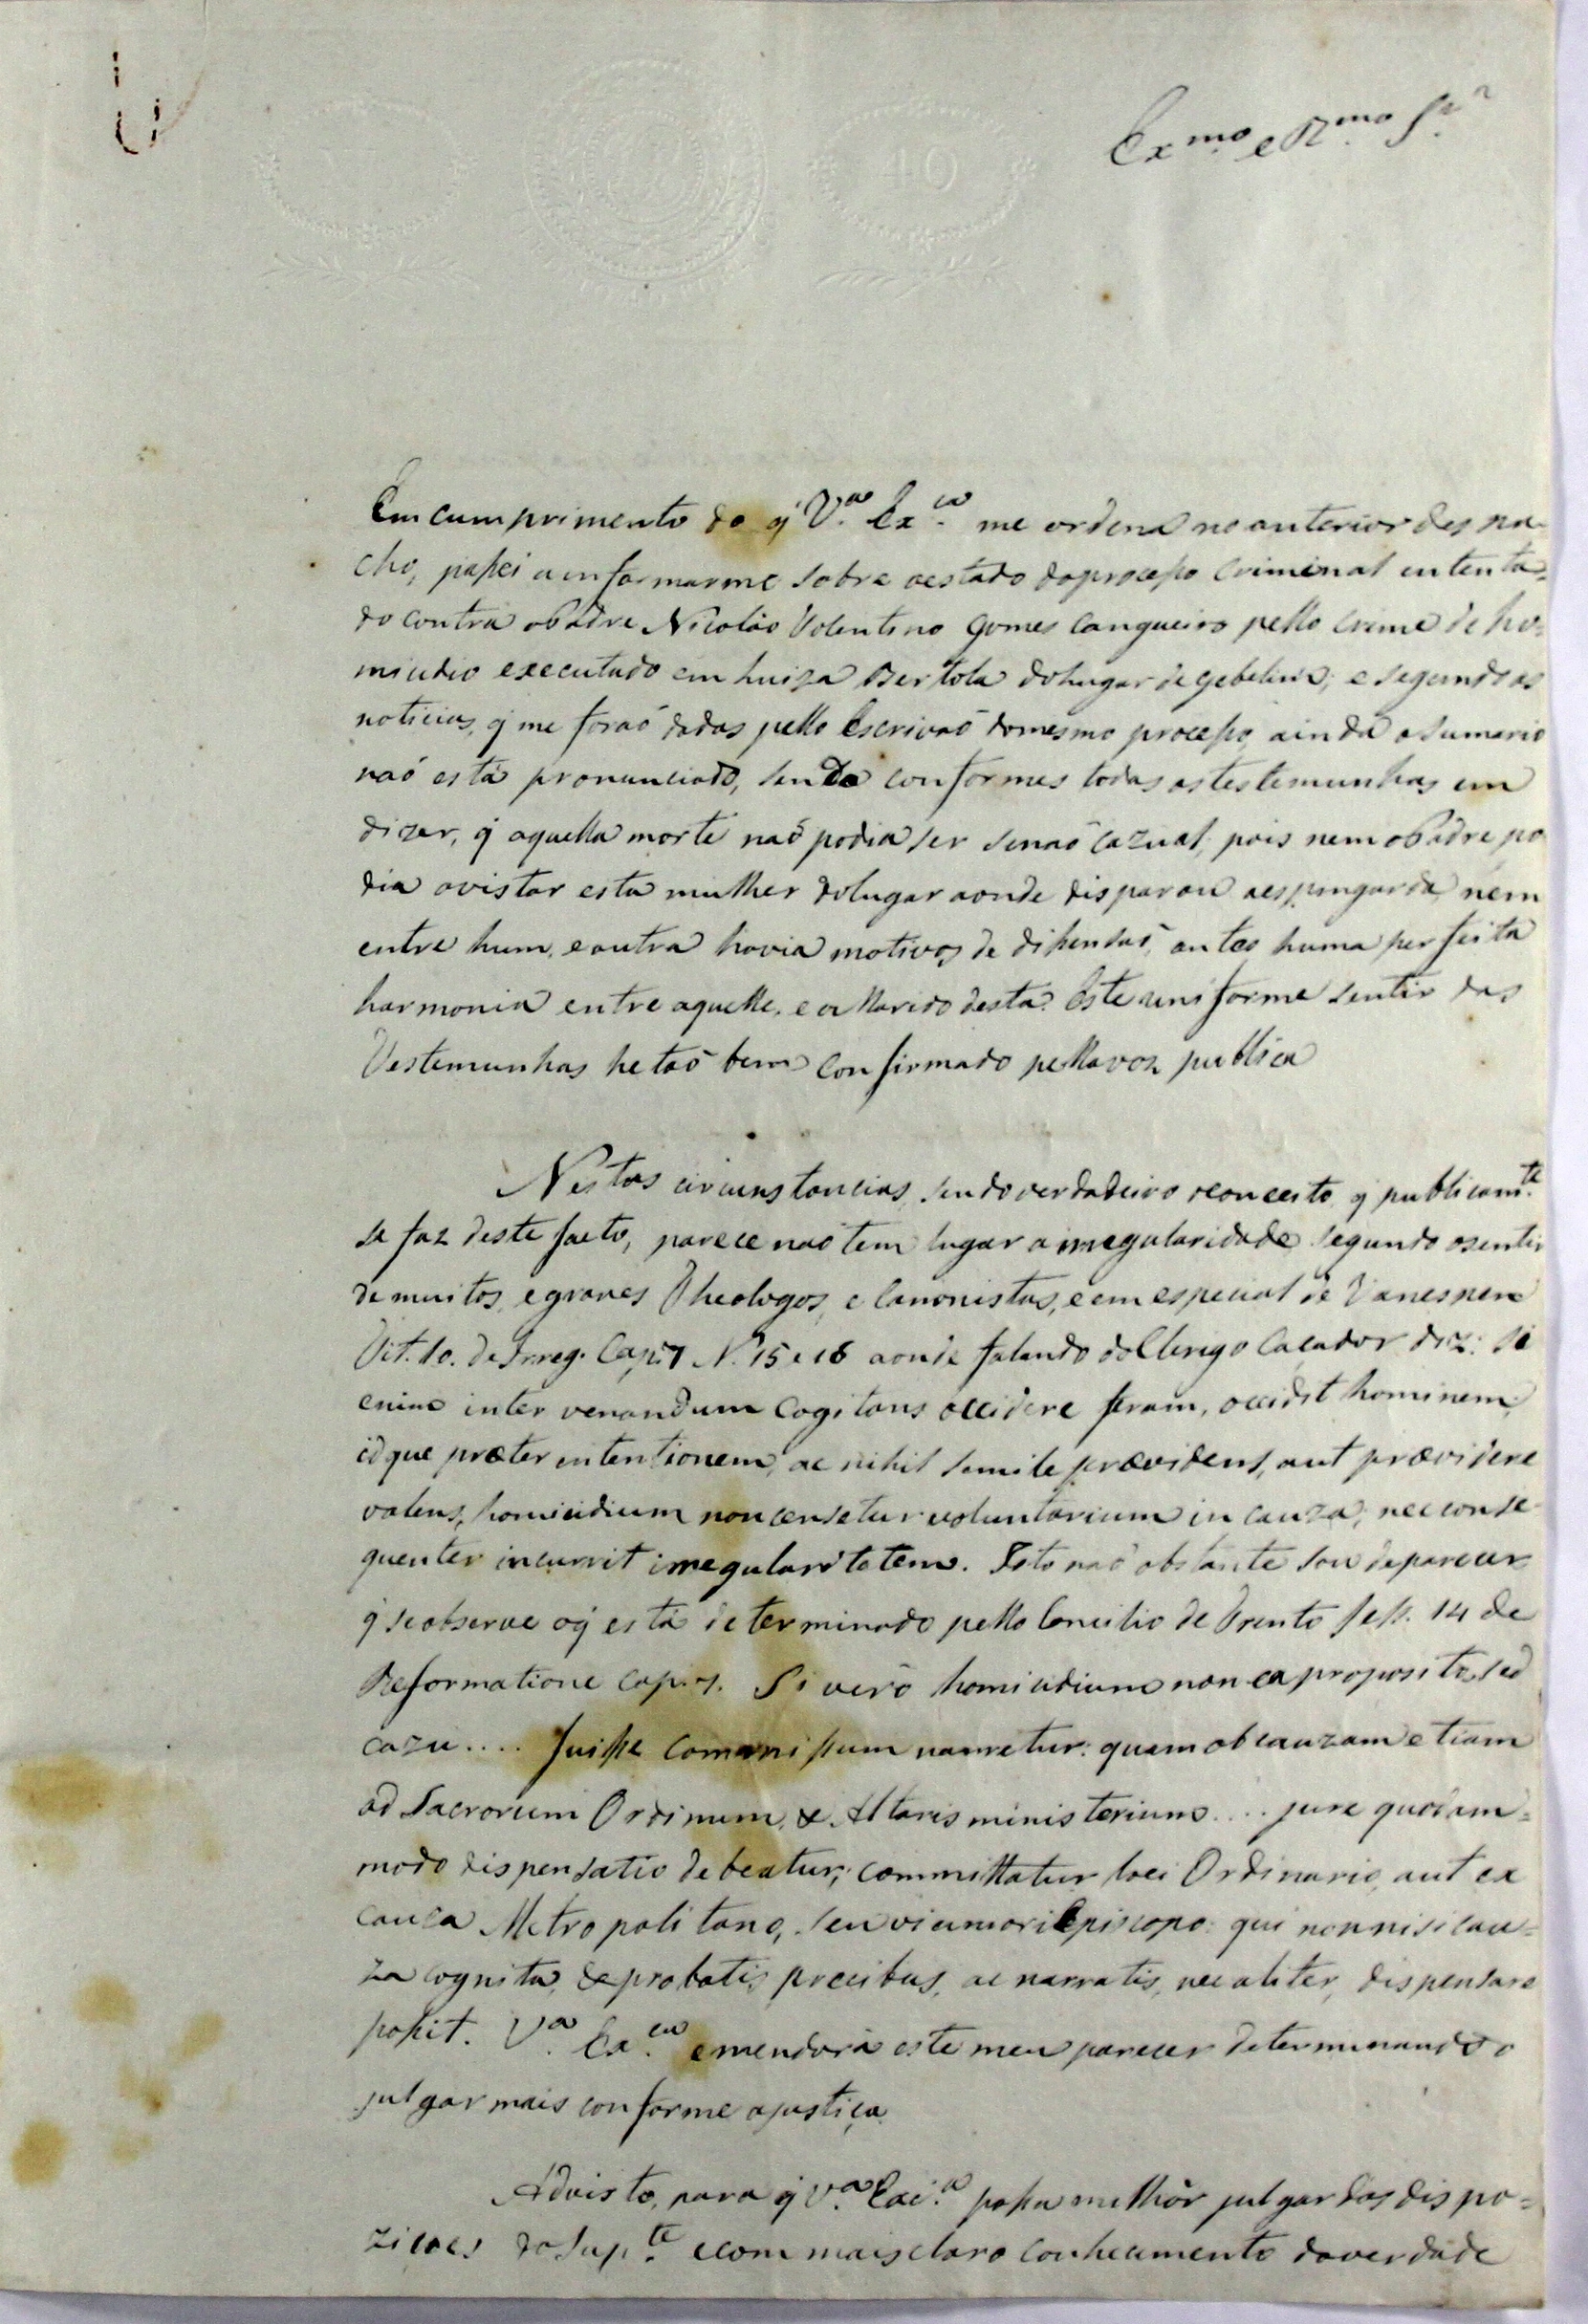 40
Ex.mo e R.mo Sr.
Em cumprimento do q̃ V.a Ex.ca me ordena no anterior despa-
cho, passei a informarme sobre o estado do processo criminal intenta=
do contra o Padre Nicoláo Volentino Gomes Cangueiro pello crime de ho=
micidio executado em Luiza Bertola do lugar de Gebelim; e segundo as
noticias, q̃ me foraõ dadas pello Escrivaõ do mesmo processo, ainda o sumario
naõ está pronunciado, sendo conformes todas as testemunhas em
dizer, q̃ aquella morte naõ podia ser senaõ cazual, pois nem o Padre po
dia avistar esta mulher do lugar aonde disparou a espingarda, nem
entre hum, e outra havia motivos de dissensaõ, antes huma perfeita
harmonia entre aquelle, e o Marido desta. Este uniforme sentir das
Testemunhas he taõ bem confirmado pella voz publica
Nestas circunstancias, sendo verdadeiro o conceito q̃ publicam.te
se faz deste facto, parece naõ tem lugar a irregularidade segundo o sentir
de muitos, e graves Theologos, e Canonistas, e em especial de Vanespen
Tit. 10. de Irreg. Cap. 7 N. 15 e 16 aonde falando do Clerigo Caçador diz: Si
enim inter venandum cogitans occidere feram, occidit hominem,
idque præter intentionem, ac nihil simile prævidens, aut prævidere
valens, homicidium non censetur voluntarium in cauza, nec conse
quenter incurrit irregularitatem. Isto naõ obstante sou de parecer
q̃ se observe o q̃ está determinado pello Concilio de Trento Sess. 14 de
Reformatione cap. 7. Si verò homicidium non ex proposito, sed
cazu.... fuisse commissum narretur: quam ob cauzam etiam
ad Sacrorum Ordinum, & Altaris ministerium.... jure quodam=
modo dispensatio debeatur; committatur loci Ordinario, aut ex
causa Metropolitano, seu viciniori Episcopo: qui non nisi cau=
za cognita, & probatis precibus, ac narratis, nec aliter, dispensare
possit. V.a Ex.ca emendará este meu parecer determinando o
julgar mais conforme a justiça
Advisto, para q̃ V.a Exc.a possa milhór julgar das dispo=
zicoes do Sup.te e com mais claro conhecimento da verdade